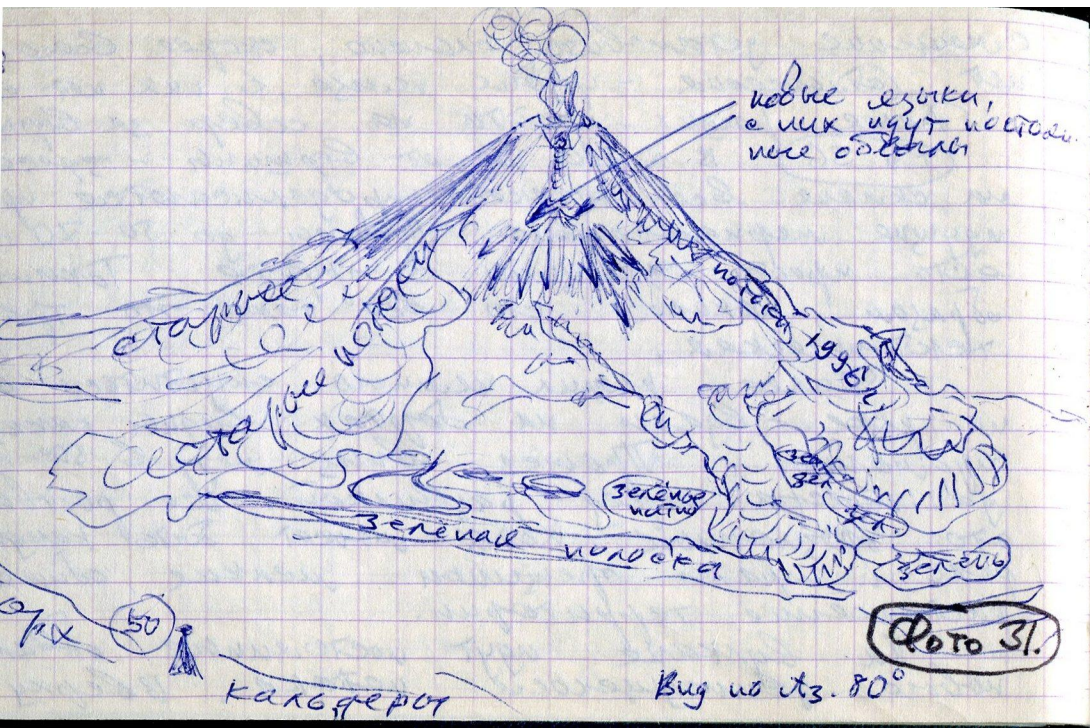 новые языки,
с них идут постоян-
ные обвалы
старые
потоки
старые потоки
потоки 1996 г
зелёные
пятна
зел.
зел.
зел.
зелёная полоска
зелень
50
кальдеры
Вид по Аз. 80°
Фото 31.